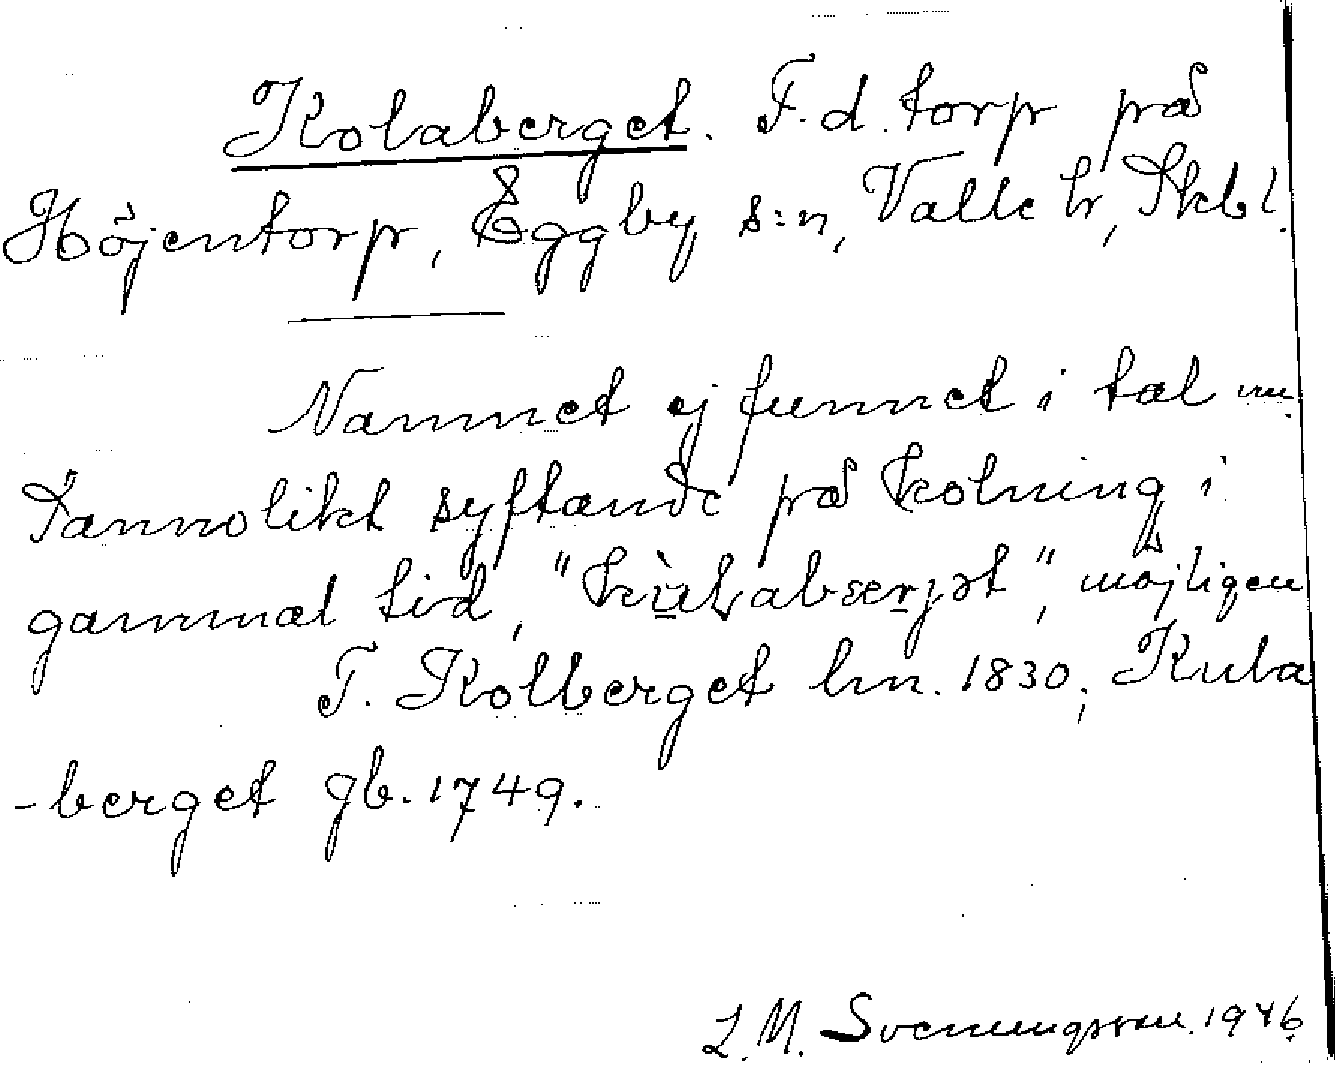 Kolaberget. F.d. torp på
Höjentorp, Eggby s:n, Valle hr, Skbl.
Namnet ej funnet i tal nu.
Sannolikt syftande på kolning i
gammal tid, möjligen
T. Kolberget hn. 1830; Kula
-berget gb. 1749.
L. M. Svenungsson. 1946